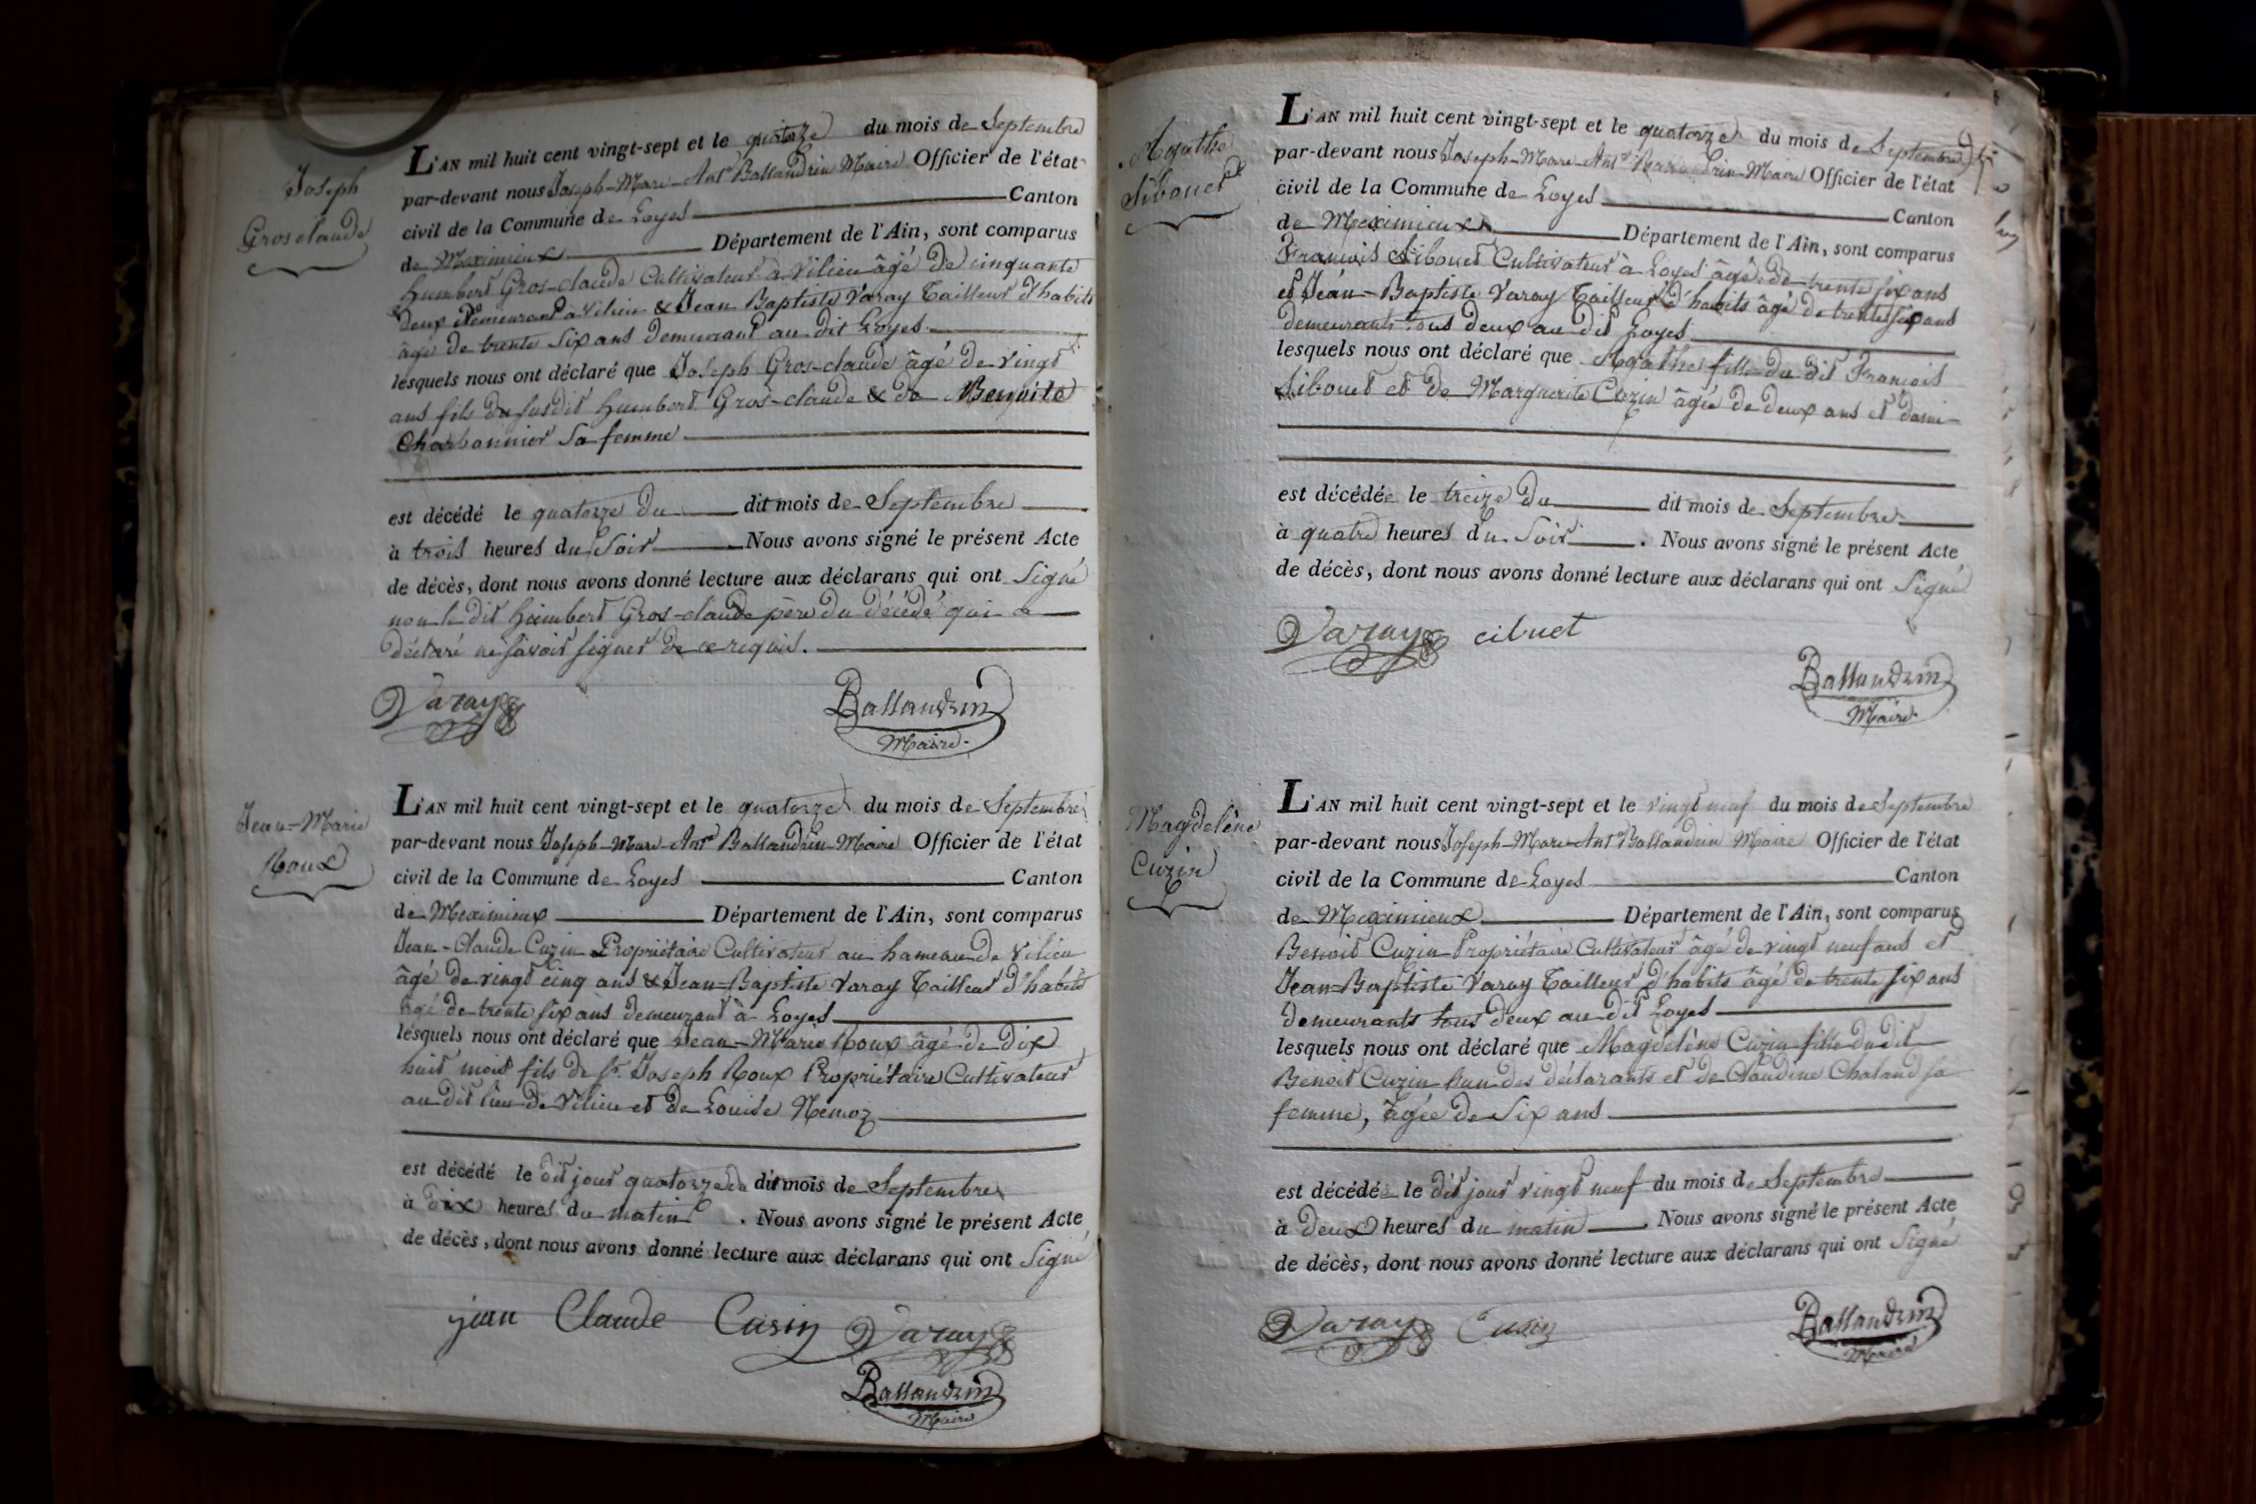 Joseph
Gros claude
L'AN mil huit cent vingt-sept et le quatorze du mois de Septembre
par-devant nous Joseph-Marie-Ante Ballandrin Maire Officier de l'état
civil de la Commune de Loyes Canton
de Meximieux Département de l'Ain, sont comparus
Humbert Gros-claude Cultivateur à Vilieu âgé de cinquante
deux demeurant à Vilieu & Jean Baptiste Varay Tailleur d'habits
âgé de trente six ans demeurant au dit Loyes
lesquels nous ont déclaré que Joseph Gros-claude âgé de vingt
ans fils du susdit Humbert Gros-claude & de Benoite
Charbonnier sa femme
est décédé le quatorze du dit mois de Septembre
à trois heures du Soir Nous avons signé le présent Acte
de décès, dont nous avons donné lecture aux déclarans qui ont Signé
non le dit Humbert Gros-claude père du décédé qui a
déclaré ne savoir signer de ce requis.
Varay
Ballandrin
Maire.
Jean-Marie
Roux
L'AN mil huit cent vingt-sept et le quatorze du mois de Septembre
par-devant nous Joseph-Marie-Ante Ballandrin-Maire Officier de l'état
civil de la Commune de Loyes Canton
de Meximieux Département de l'Ain, sont comparus
Jean-Claude Cuzin Propriétaire Cultivateur au hameau de Vilieu
âgé de vingt cinq ans & Jean-Baptiste Varay Tailleur d'habits
âgé de trente six ans demeurant à Loyes
lesquels nous ont déclaré que Jean-Marie Roux âgé de dix
huit mois fils de Sr. Joseph Roux Propriétaire Cultivateur
au dit lieu de Vilieu et de Louise Nemoz
est décédé le dit jour quatorze du dit mois de Septembre
à dix heures du matin . Nous avons signé le présent Acte
de décès, dont nous avons donné lecture aux déclarans qui ont Signé
jean Claude Cusin Varay
Ballandrin
Maire
Agathe
Sibouet
L'AN mil huit cent vingt-sept et le quatorze du mois de Septembre
par-devant nous Joseph-Marie-Ante Ballandrin-Maire Officier de l'état
civil de la Commune de Loyes Canton
de Meximieux Département de l'Ain, sont comparus
François Sibouet Cultivateur à Loyes âgé de trente six ans
et Jean-Baptiste Varay Tailleur d'habits âgé de trente six ans
demeurants tous deux au dit Loyes
lesquels nous ont déclaré que Agathe fille du dit François
Sibouet et de Marguerite Cuzin âgée de deux ans et demi
est décédée le treize du dit mois de Septembre
à quatre heures du Soir . Nous avons signé le présent Acte
de décès, dont nous avons donné lecture aux déclarans qui ont Signé
Varay cibuet
Ballandrin
Maire.
Magdelène
Cuzin
L'AN mil huit cent vingt-sept et le vingt neuf du mois de Septembre
par-devant nous Joseph-Marie-Ante Ballandrin Maire Officier de l'état
civil de la Commune de Loyes Canton
de Meximieux Département de l'Ain, sont comparus
Benoit Cuzin Propriétaire Cultivateur âgé de vingt neuf ans et
Jean-Baptiste Varay Tailleur d'habits âgé de trente six ans
demeurants tous deux au dit Loyes
lesquels nous ont déclaré que Magdelène Cuzin fille du dit
Benoit Cuzin l'un des déclarants et de Claudine Chaland sa
femme, âgée de Six ans
est décédée le dit jour vingt neuf du mois de Septembre
à deux heures du matin . Nous avons signé le présent Acte
de décès, dont nous avons donné lecture aux déclarans qui ont Signé
Varay Cusin
Ballandrin
Maire